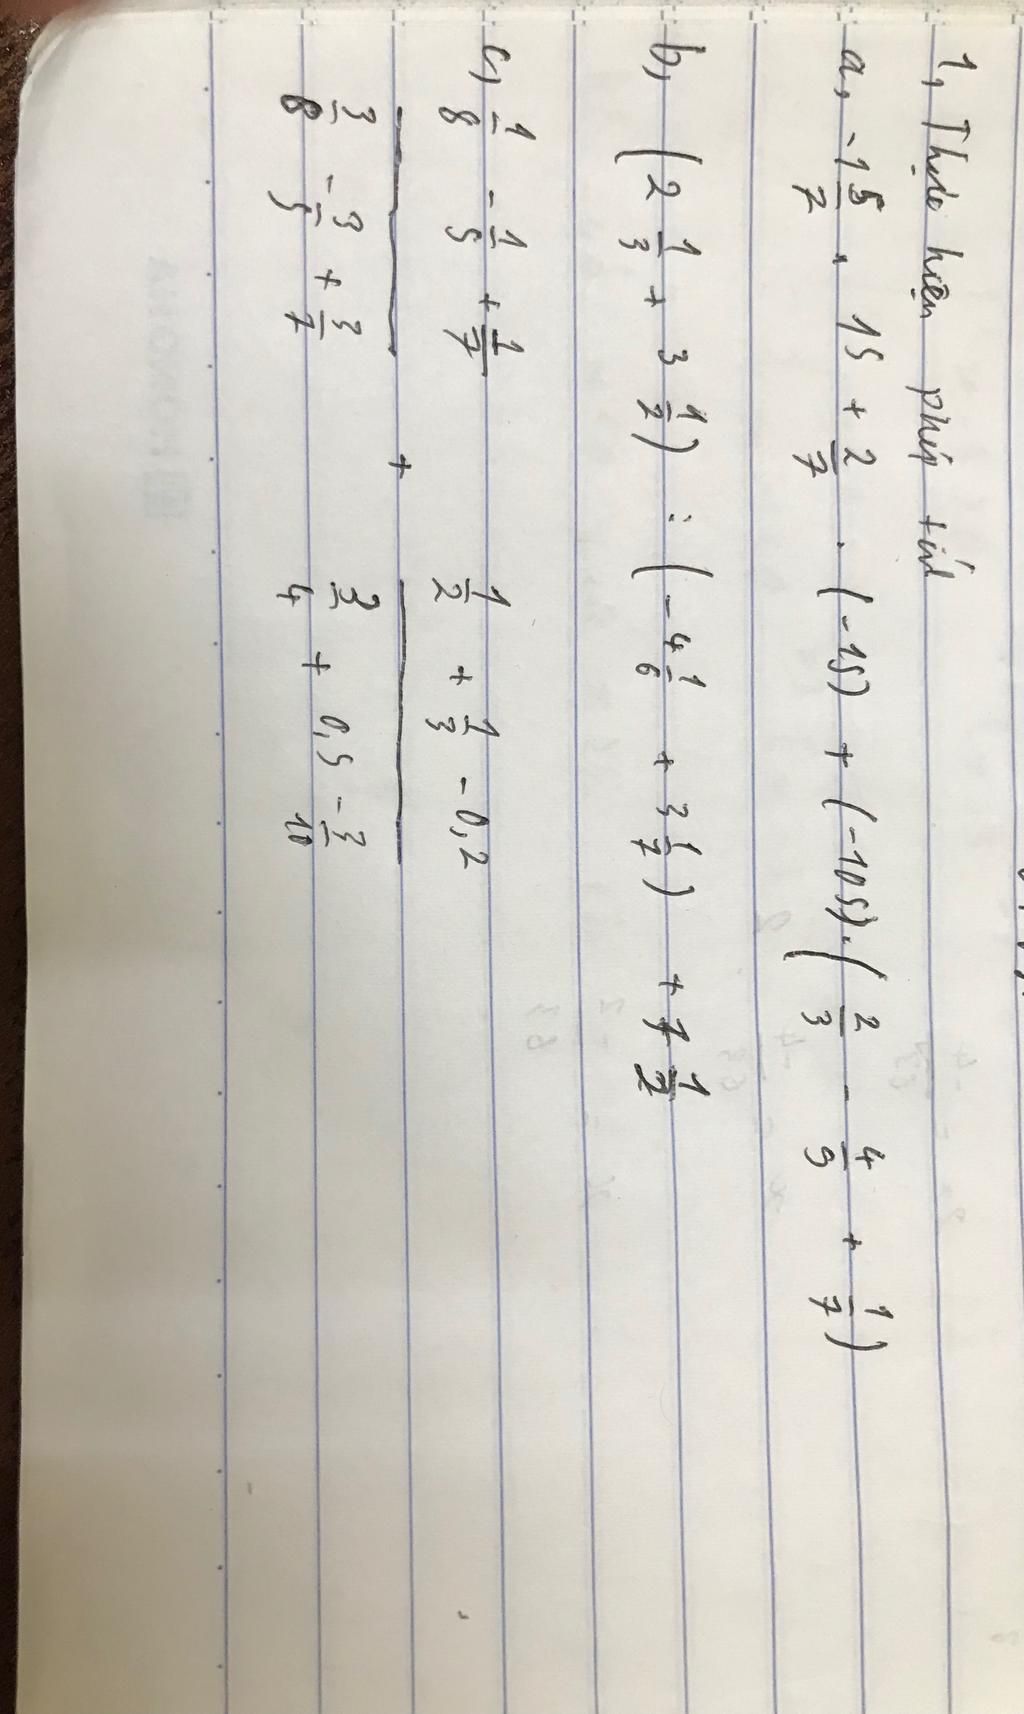 1, Thực hiện phép tính
a, -1 5/7 . 15 + 2/7 . (-15) + (-105) . (2/3 - 4/5 + 1/7)
b, (2 1/3 + 3 1/2) : (-4 1/6 + 3 1/7) + 7 1/2
c, (1/8 - 1/5 + 1/7)/(3/8 - 3/5 + 3/7) + (1/2 + 1/3 - 0,2)/(3/4 + 0,5 - 3/10)